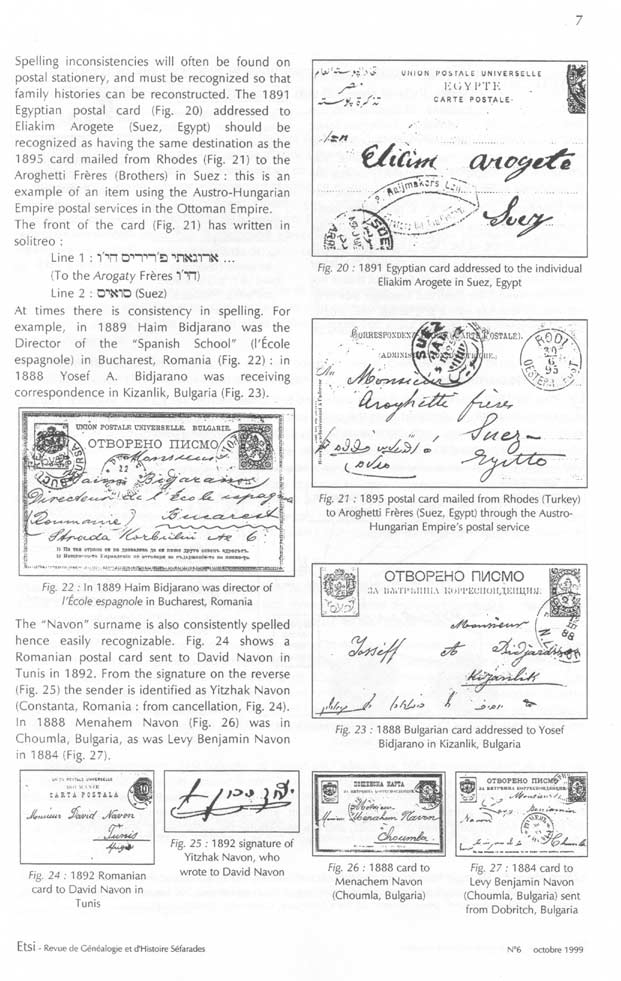 7
Spelling inconsistencies will often be found on
postal stationery, and must be recognized so that
family histories can be reconstructed. The 1891
Egyptian postal card (Fig. 20) addressed to
Eliakim Arogete (Suez, Egypt) should be
recognized as having the same destination as the
1895 card mailed from Rhodes (Fig. 21) to the
Aroghetti Frères (Brothers) in Suez : this is an
example of an item using the Austro-Hungarian
Empire postal services in the Ottoman Empire.
The front of the card (Fig. 21) has written in
solitreo :
Line 1 : ארוגאתי פ'רירים הי"ו ...
(To the Arogaty Frères הי"ו)
Line 2 : סואיס (Suez)
At times there is consistency in spelling. For
example, in 1889 Haim Bidjarano was the
Director of the "Spanish School" (l'École
espagnole) in Bucharest, Romania (Fig. 22) : in
1888 Yosef A. Bidjarano was receiving
correspondence in Kizanlik, Bulgaria (Fig. 23).
UNION POSTALE UNIVERSELLE. BULGARIE.
ОТВОРЕНО ПИСМО
Monsieur
Haim Bidjarano
Directeur de l'École espagnole
(Roumanie) Bucarest
Strada
Fig. 22 : In 1889 Haim Bidjarano was director of
l'École espagnole in Bucharest, Romania
The "Navon" surname is also consistently spelled
hence easily recognizable. Fig. 24 shows a
Romanian postal card sent to David Navon in
Tunis in 1892. From the signature on the reverse
(Fig. 25) the sender is identified as Yitzhak Navon
(Constanta, Romania : from cancellation, Fig. 24).
In 1888 Menahem Navon (Fig. 26) was in
Choumla, Bulgaria, as was Levy Benjamin Navon
in 1884 (Fig. 27).
UNION POSTALE UNIVERSELLE
EGYPTE
CARTE POSTALE
Elicim arogete
Suez
Fig. 20 : 1891 Egyptian card addressed to the individual
Eliakim Arogete in Suez, Egypt
SUEZ
RODI
Monsieur
Aroghette frères
Suez
Egitto
Fig. 21 : 1895 postal card mailed from Rhodes (Turkey)
to Aroghetti Frères (Suez, Egypt) through the Austro-
Hungarian Empire's postal service
ОТВОРЕНО ПИСМО
ЗА ВѪТРѢШНА КОРРЕСПОНДЕНЦИЯ
Monsieur
Josseff A Bidjarano
Kizanlik
Fig. 23 : 1888 Bulgarian card addressed to Yosef
Bidjarano in Kizanlik, Bulgaria
CARTA POSTALA
Monsieur David Navon
Tunis
Fig. 24 : 1892 Romanian
card to David Navon in
Tunis
Fig. 25 : 1892 signature of
Yitzhak Navon, who
wrote to David Navon
Menahem Navon
Choumla
Fig. 26 : 1888 card to
Menachem Navon
(Choumla, Bulgaria)
ОТВОРЕНО ПИСМО
Choumla
Fig. 27 : 1884 card to
Levy Benjamin Navon
(Choumla, Bulgaria) sent
from Dobritch, Bulgaria
Etsi - Revue de Généalogie et d'Histoire Séfarades
N°6 octobre 1999